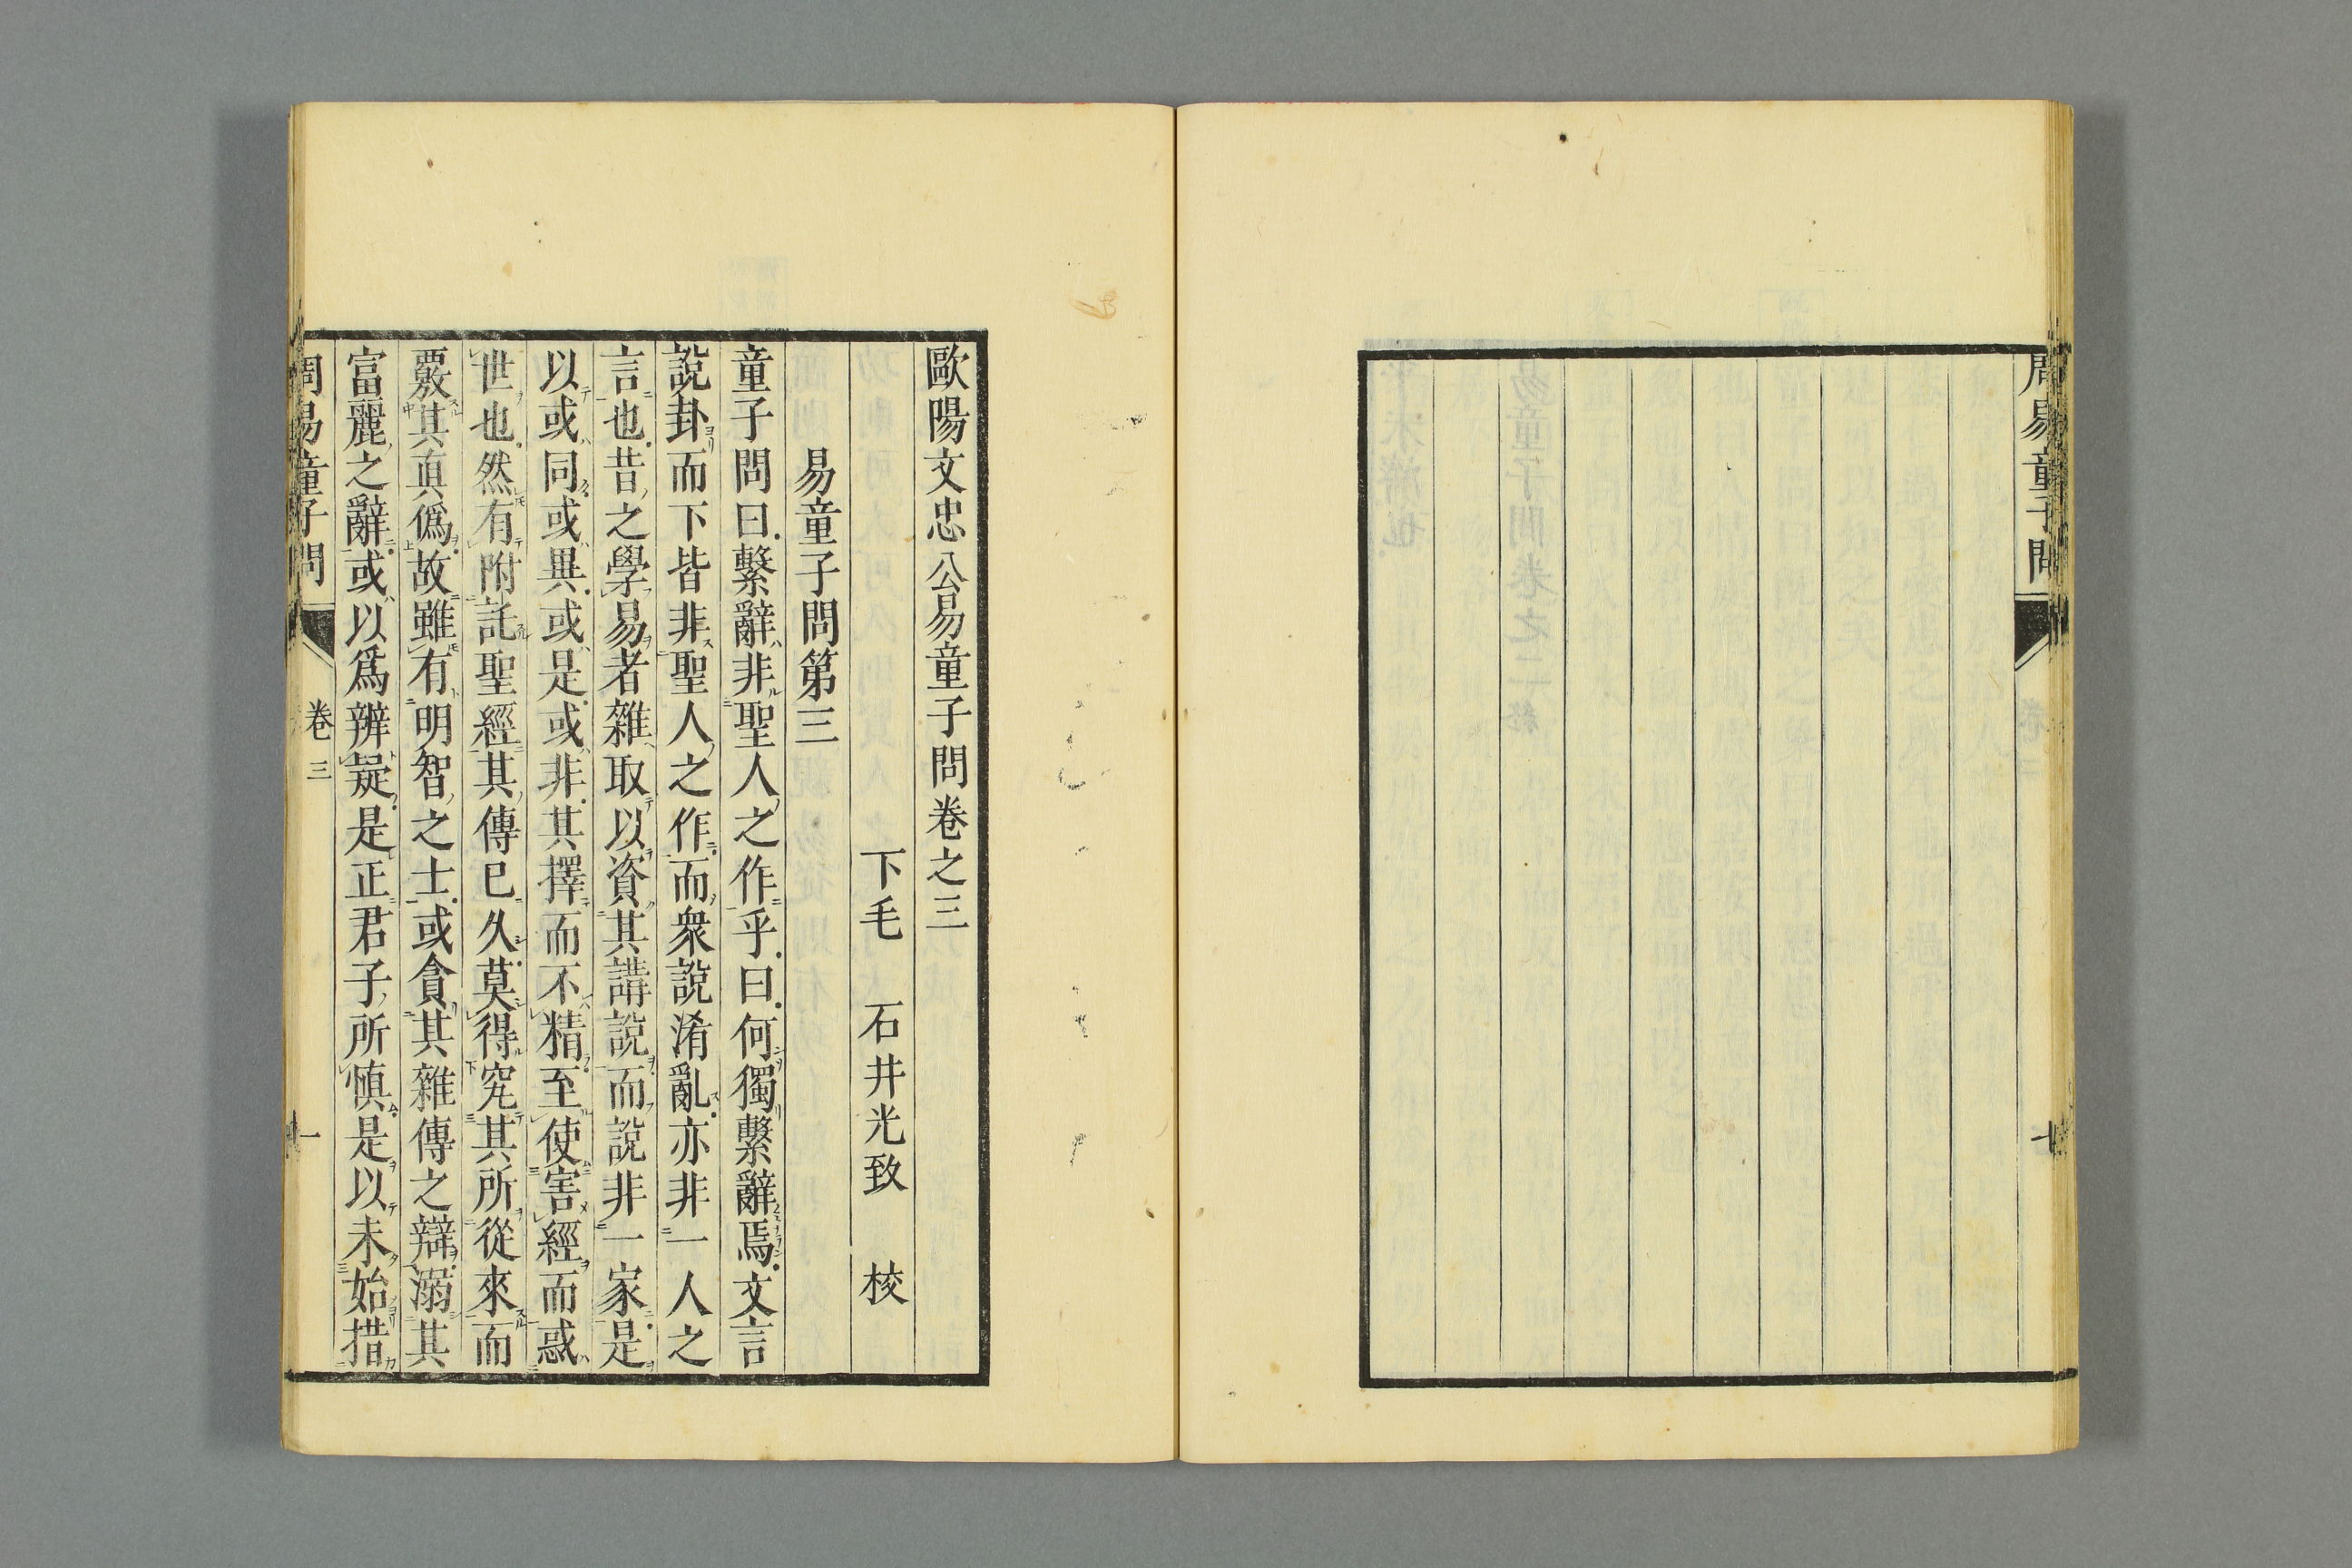 周易童子問
歐陽文忠公易童子問卷之三
下毛 石井光致 校
易童子問第三
童子問曰繫辭非聖人之作乎曰何獨繫辭焉文言
說卦而下皆非聖人之作而衆說淆亂亦非一人之
言也昔之學易者雜取以資其講說而說非一家是
以或同或異或是或非其擇而不精至使害經而惑
世也然有附託聖經其傳已久莫得究其所從來而
覈其眞僞故雖有明智之士或貪其雜傳之辯溺其
富麗之辭或以爲辨疑是正君子所愼是以未始措
周易童子問 卷三 一